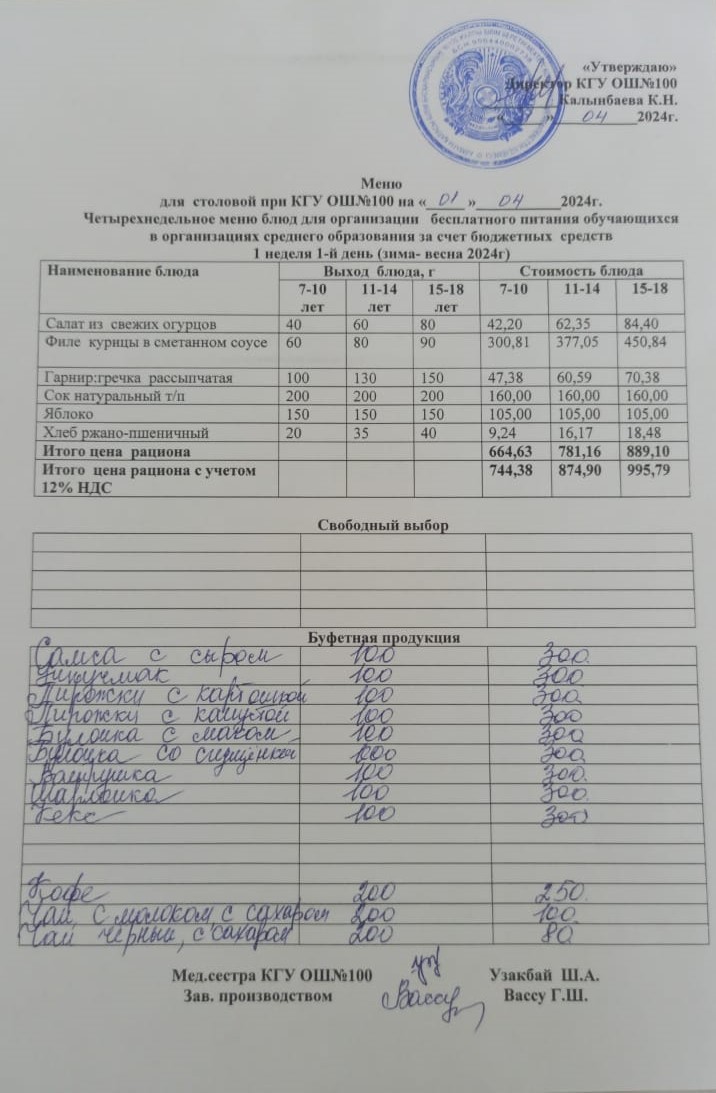 «Утверждаю»
Директор КГУ ОШ№100
Калынбаева К.Н.
«    » 04 2024г.
Меню
для столовой при КГУ ОШ№100 на « 01 » 04 2024г.
Четырехнедельное меню блюд для организации бесплатного питания обучающихся
в организациях среднего образования за счет бюджетных средств
1 неделя 1-й день (зима- весна 2024г)
Наименование блюда Выход блюда, г Стоимость блюда
7-10 лет 11-14 лет 15-18 лет 7-10 11-14 15-18
Салат из свежих огурцов 40 60 80 42,20 62,35 84,40
Филе курицы в сметанном соусе 60 80 90 300,81 377,05 450,84
Гарнир:гречка рассыпчатая 100 130 150 47,38 60,59 70,38
Сок натуральный т/п 200 200 200 160,00 160,00 160,00
Яблоко 150 150 150 105,00 105,00 105,00
Хлеб ржано-пшеничный 20 35 40 9,24 16,17 18,48
Итого цена рациона 664,63 781,16 889,10
Итого цена рациона с учетом 744,38 874,90 995,79
12% НДС
Свободный выбор
Буфетная продукция
Самса с сыром 100 300
100 300
Пирожки с картошкой 100 300
Пирожки с капустой 100 300
Булочка с маком 100 300
Булочка со сгущенкой 100 300
Ватрушка 100 300
100 300
Кекс 100 300
Кофе 200 250
Чай с молоком с сахаром 200 100
Чай черный, с сахаром 200 80
Мед.сестра КГУ ОШ№100 Узакбай Ш.А.
Зав. производством Вассу Вассу Г.Ш.